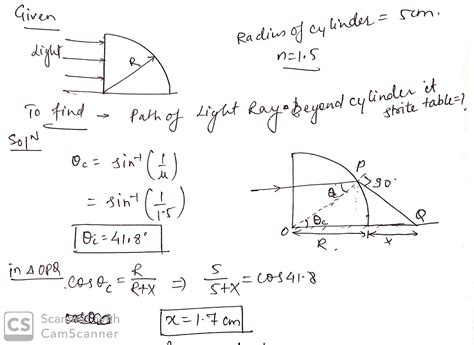 Given
Light
R
Radius of cylinder = 5cm.
n=1.5
To find → Path of Light Ray beyond cylinder it
strite table=?
Solⁿ
θc = sin⁻¹ (1/μ)
= sin⁻¹ (1/1.5)
θc = 41.8°
P
θc
90°
O
θc
Q
R
x
in Δ OPQ
cosθc = R/R+x ⇒ 5/5+x = cos41.8
x = 1.7 cm
CS Scanned with
CamScanner